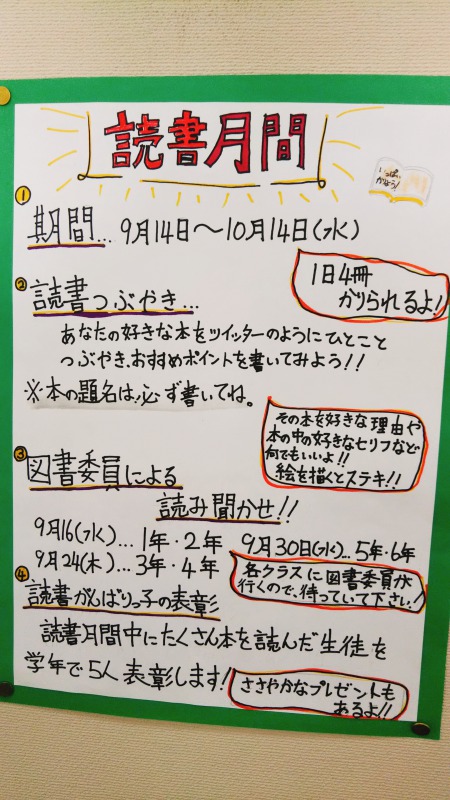 読書月間
いっぱい
かりよう!
①
期間… 9月14日〜10月14日(水)
1日4冊
かりられるよ!
② 読書つぶやき…
あなたの好きな本をツイッターのようにひとこと
つぶやき、おすすめポイントを書いてみよう!!
※本の題名は必ず書いてね。
その本を好きな理由や
本の中の好きなセリフなど
何でもいいよ!!
絵を描くとステキ!!
③ 図書委員による
読み聞かせ!!
9月16(水)…1年・2年
9月24(木)…3年・4年
9月30日(水)…5年・6年
各クラスに図書委員が
行くので、待っていて下さい!
④ 読書がんばりっ子の表彰
読書月間中にたくさん本を読んだ生徒を
学年で5人表彰します!
ささやかなプレゼントも
あるよ!!